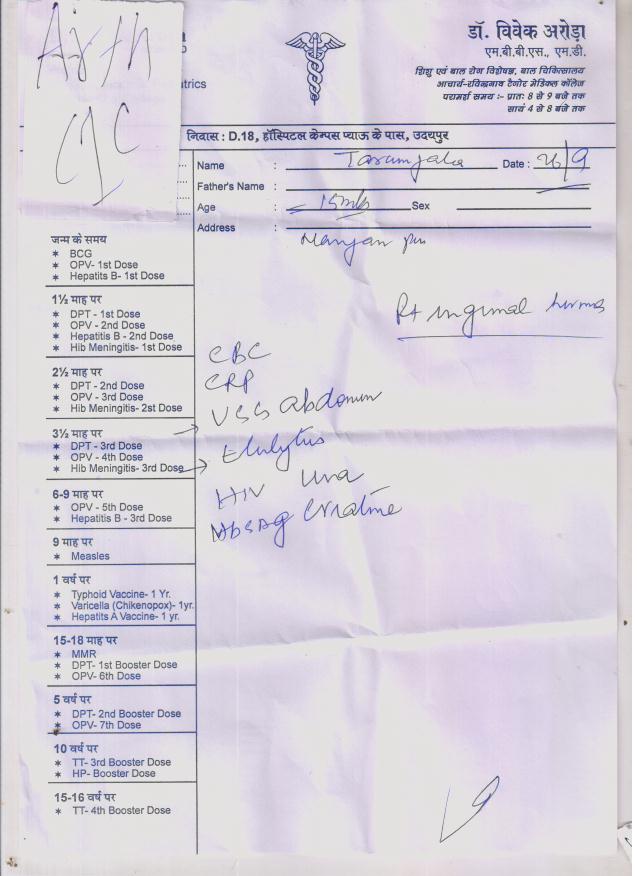 Arth
CJC
trics
डॉ. विवेक अरोड़ा
एम.बी.बी.एस., एम.डी.
शिशु एवं बाल रोग विशेषज्ञ, बाल चिकित्सालय
आचार्य-रविन्द्रनाथ टैगोर मेडिकल कॉलेज
परामर्श समय :- प्रातः 8 से 9 बजे तक
सायं 4 से 8 बजे तक
निवास : D.18, हॉस्पिटल केम्पस प्याऊ के पास, उदयपुर
Name : Date : 26/9
Father's Name :
Age : 15 mths Sex
Address :
Rt inguinal hernia
CBC
CRP
USG abdomen
HIV
HbsAg
जन्म के समय
* BCG
* OPV- 1st Dose
* Hepatits B- 1st Dose
1½ माह पर
* DPT - 1st Dose
* OPV - 2nd Dose
* Hepatitis B - 2nd Dose
* Hib Meningitis- 1st Dose
2½ माह पर
* DPT - 2nd Dose
* OPV - 3rd Dose
* Hib Meningitis- 2st Dose
3½ माह पर
* DPT - 3rd Dose
* OPV - 4th Dose
* Hib Meningitis - 3rd Dose
6-9 माह पर
* OPV - 5th Dose
* Hepatitis B - 3rd Dose
9 माह पर
* Measles
1 वर्ष पर
* Typhoid Vaccine- 1 Yr.
* Varicella (Chikenopox)- 1yr.
* Hepatits A Vaccine- 1 yr.
15-18 माह पर
* MMR
* DPT- 1st Booster Dose
* OPV- 6th Dose
5 वर्ष पर
* DPT- 2nd Booster Dose
* OPV- 7th Dose
10 वर्ष पर
* TT- 3rd Booster Dose
* HP- Booster Dose
15-16 वर्ष पर
* TT- 4th Booster Dose